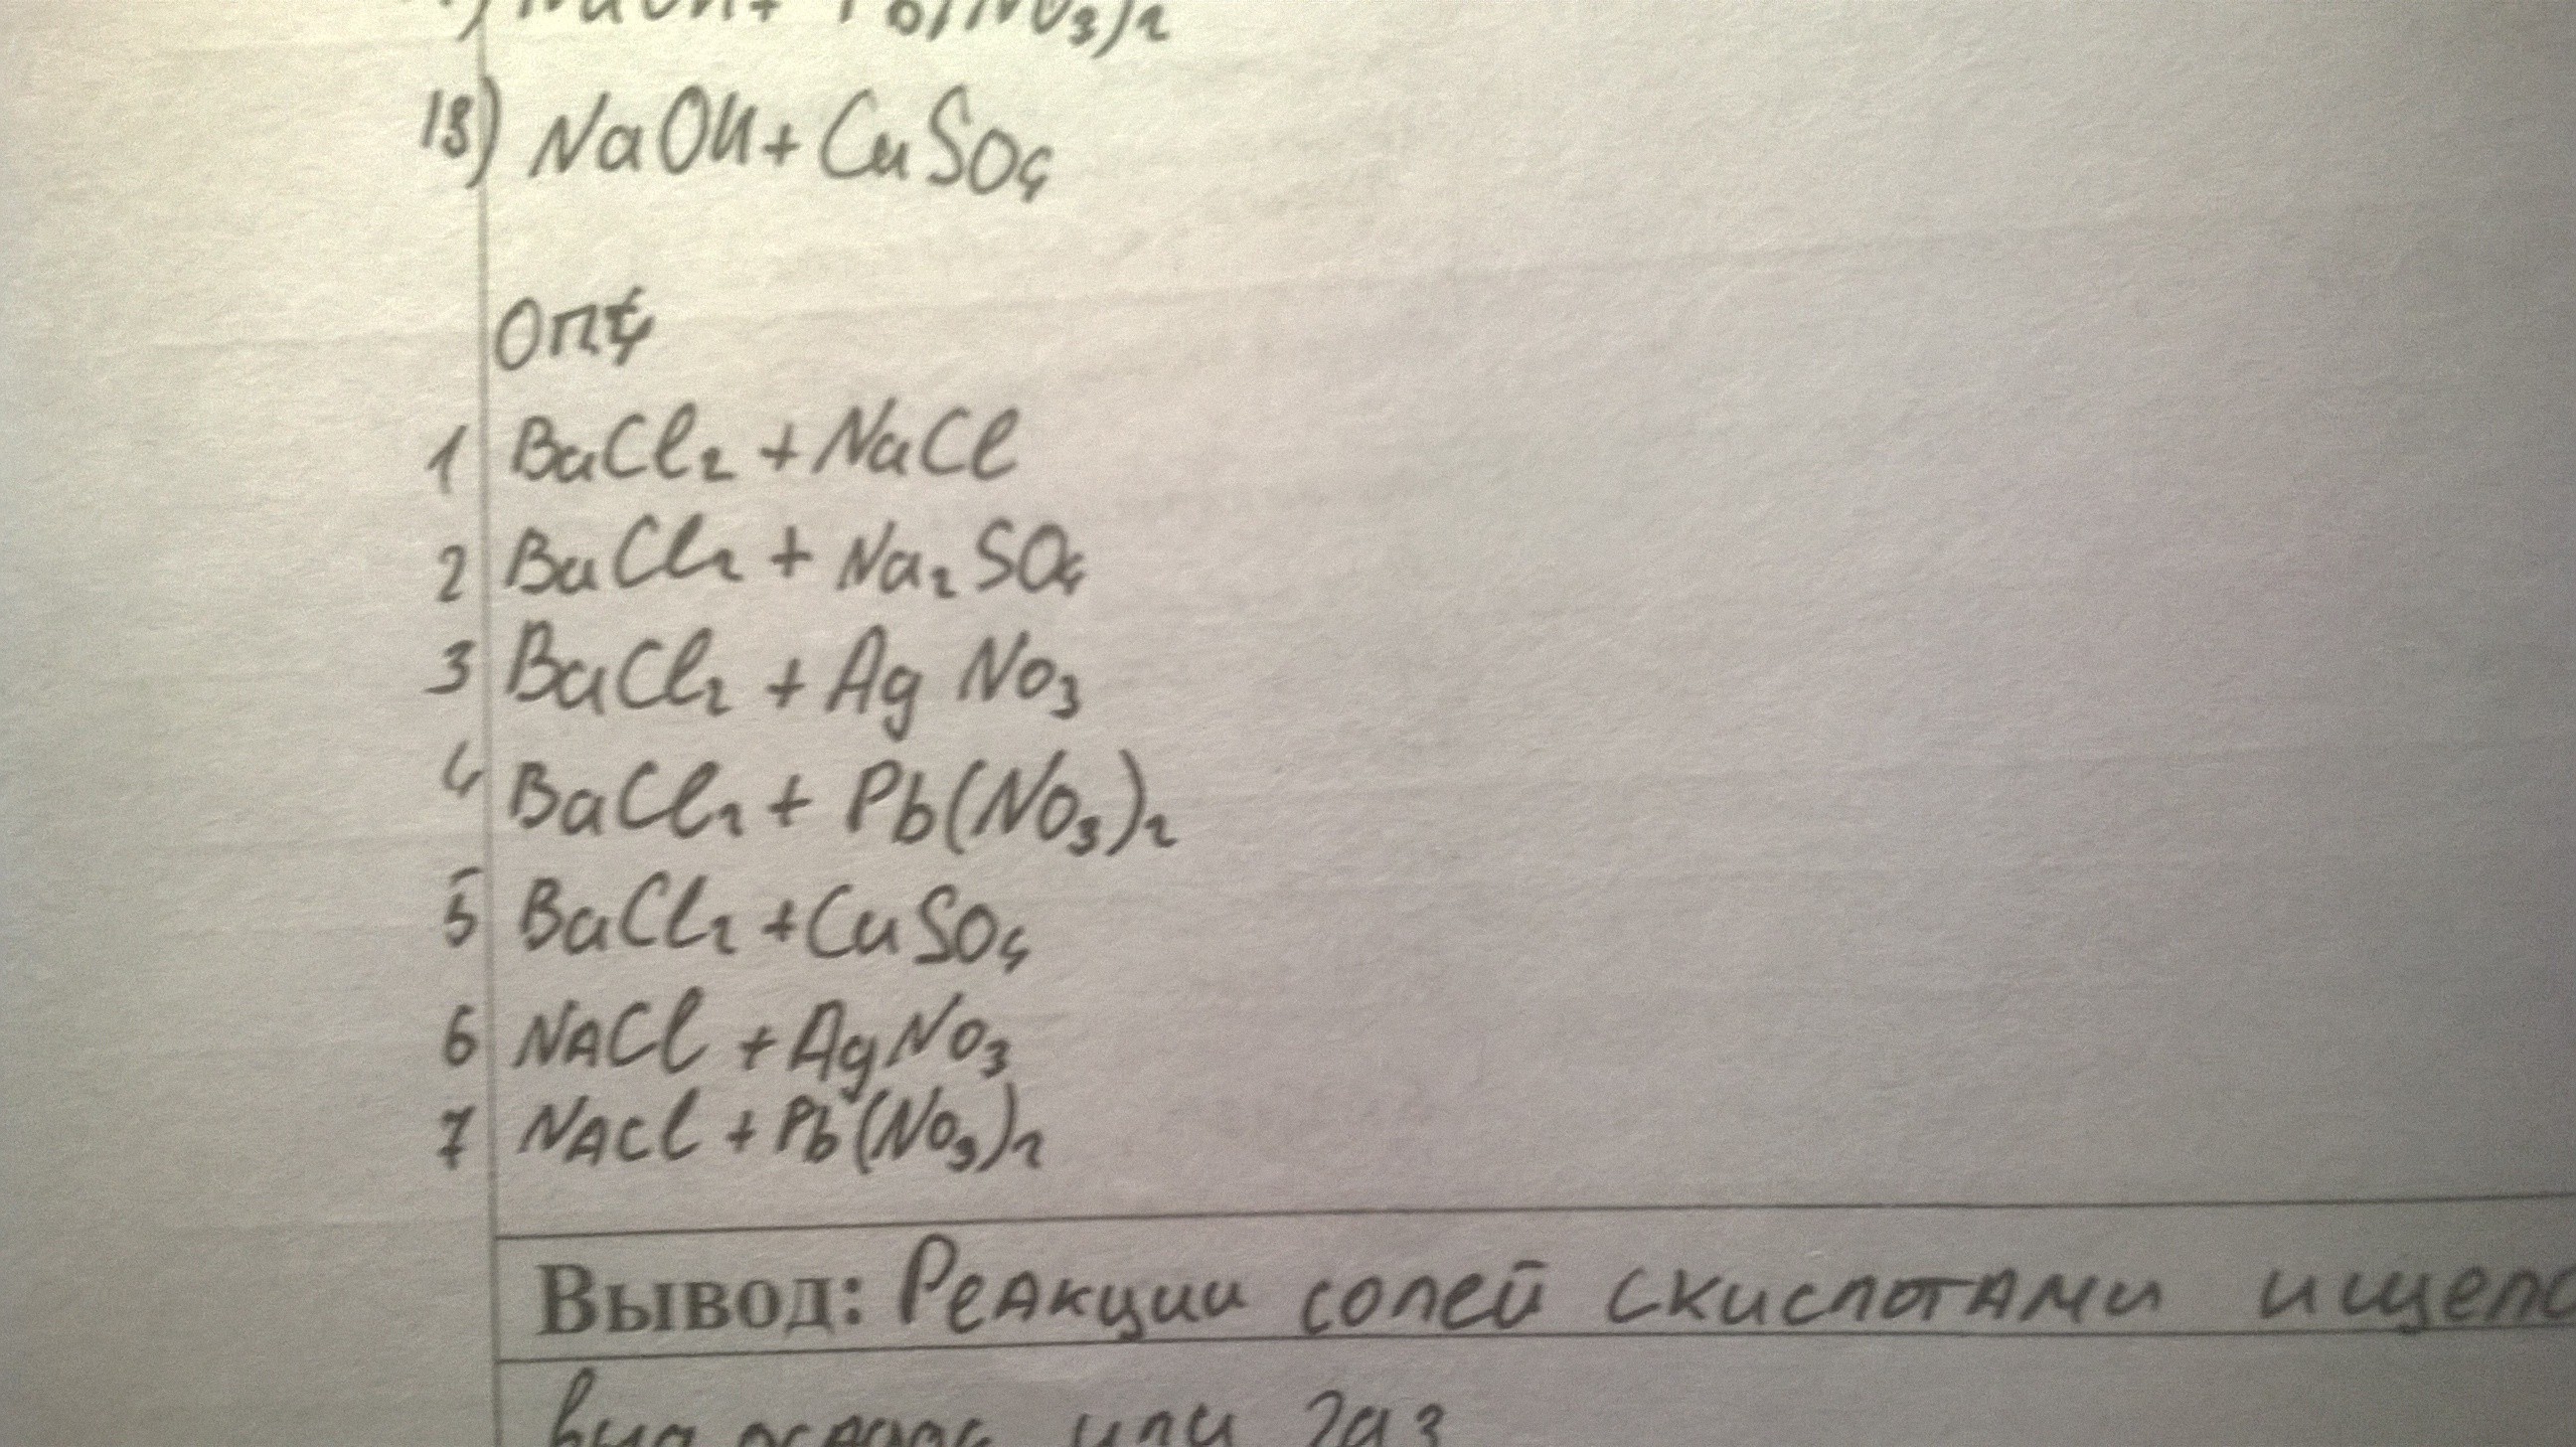 NaOH + Pb(NO₃)₂
13) NaOH + CuSO₄
1 BaCl₂ + NaCl
2 BaCl₂ + Na₂SO₄
3 BaCl₂ + Ag NO₃
4 BaCl₂ + Pb(NO₃)₂
5 BaCl₂ + CuSO₄
6 NACl + AgNO₃
7 NACl + Pb(NO₃)₂
Вывод: Реакции солей с кислотами и щело
или газ